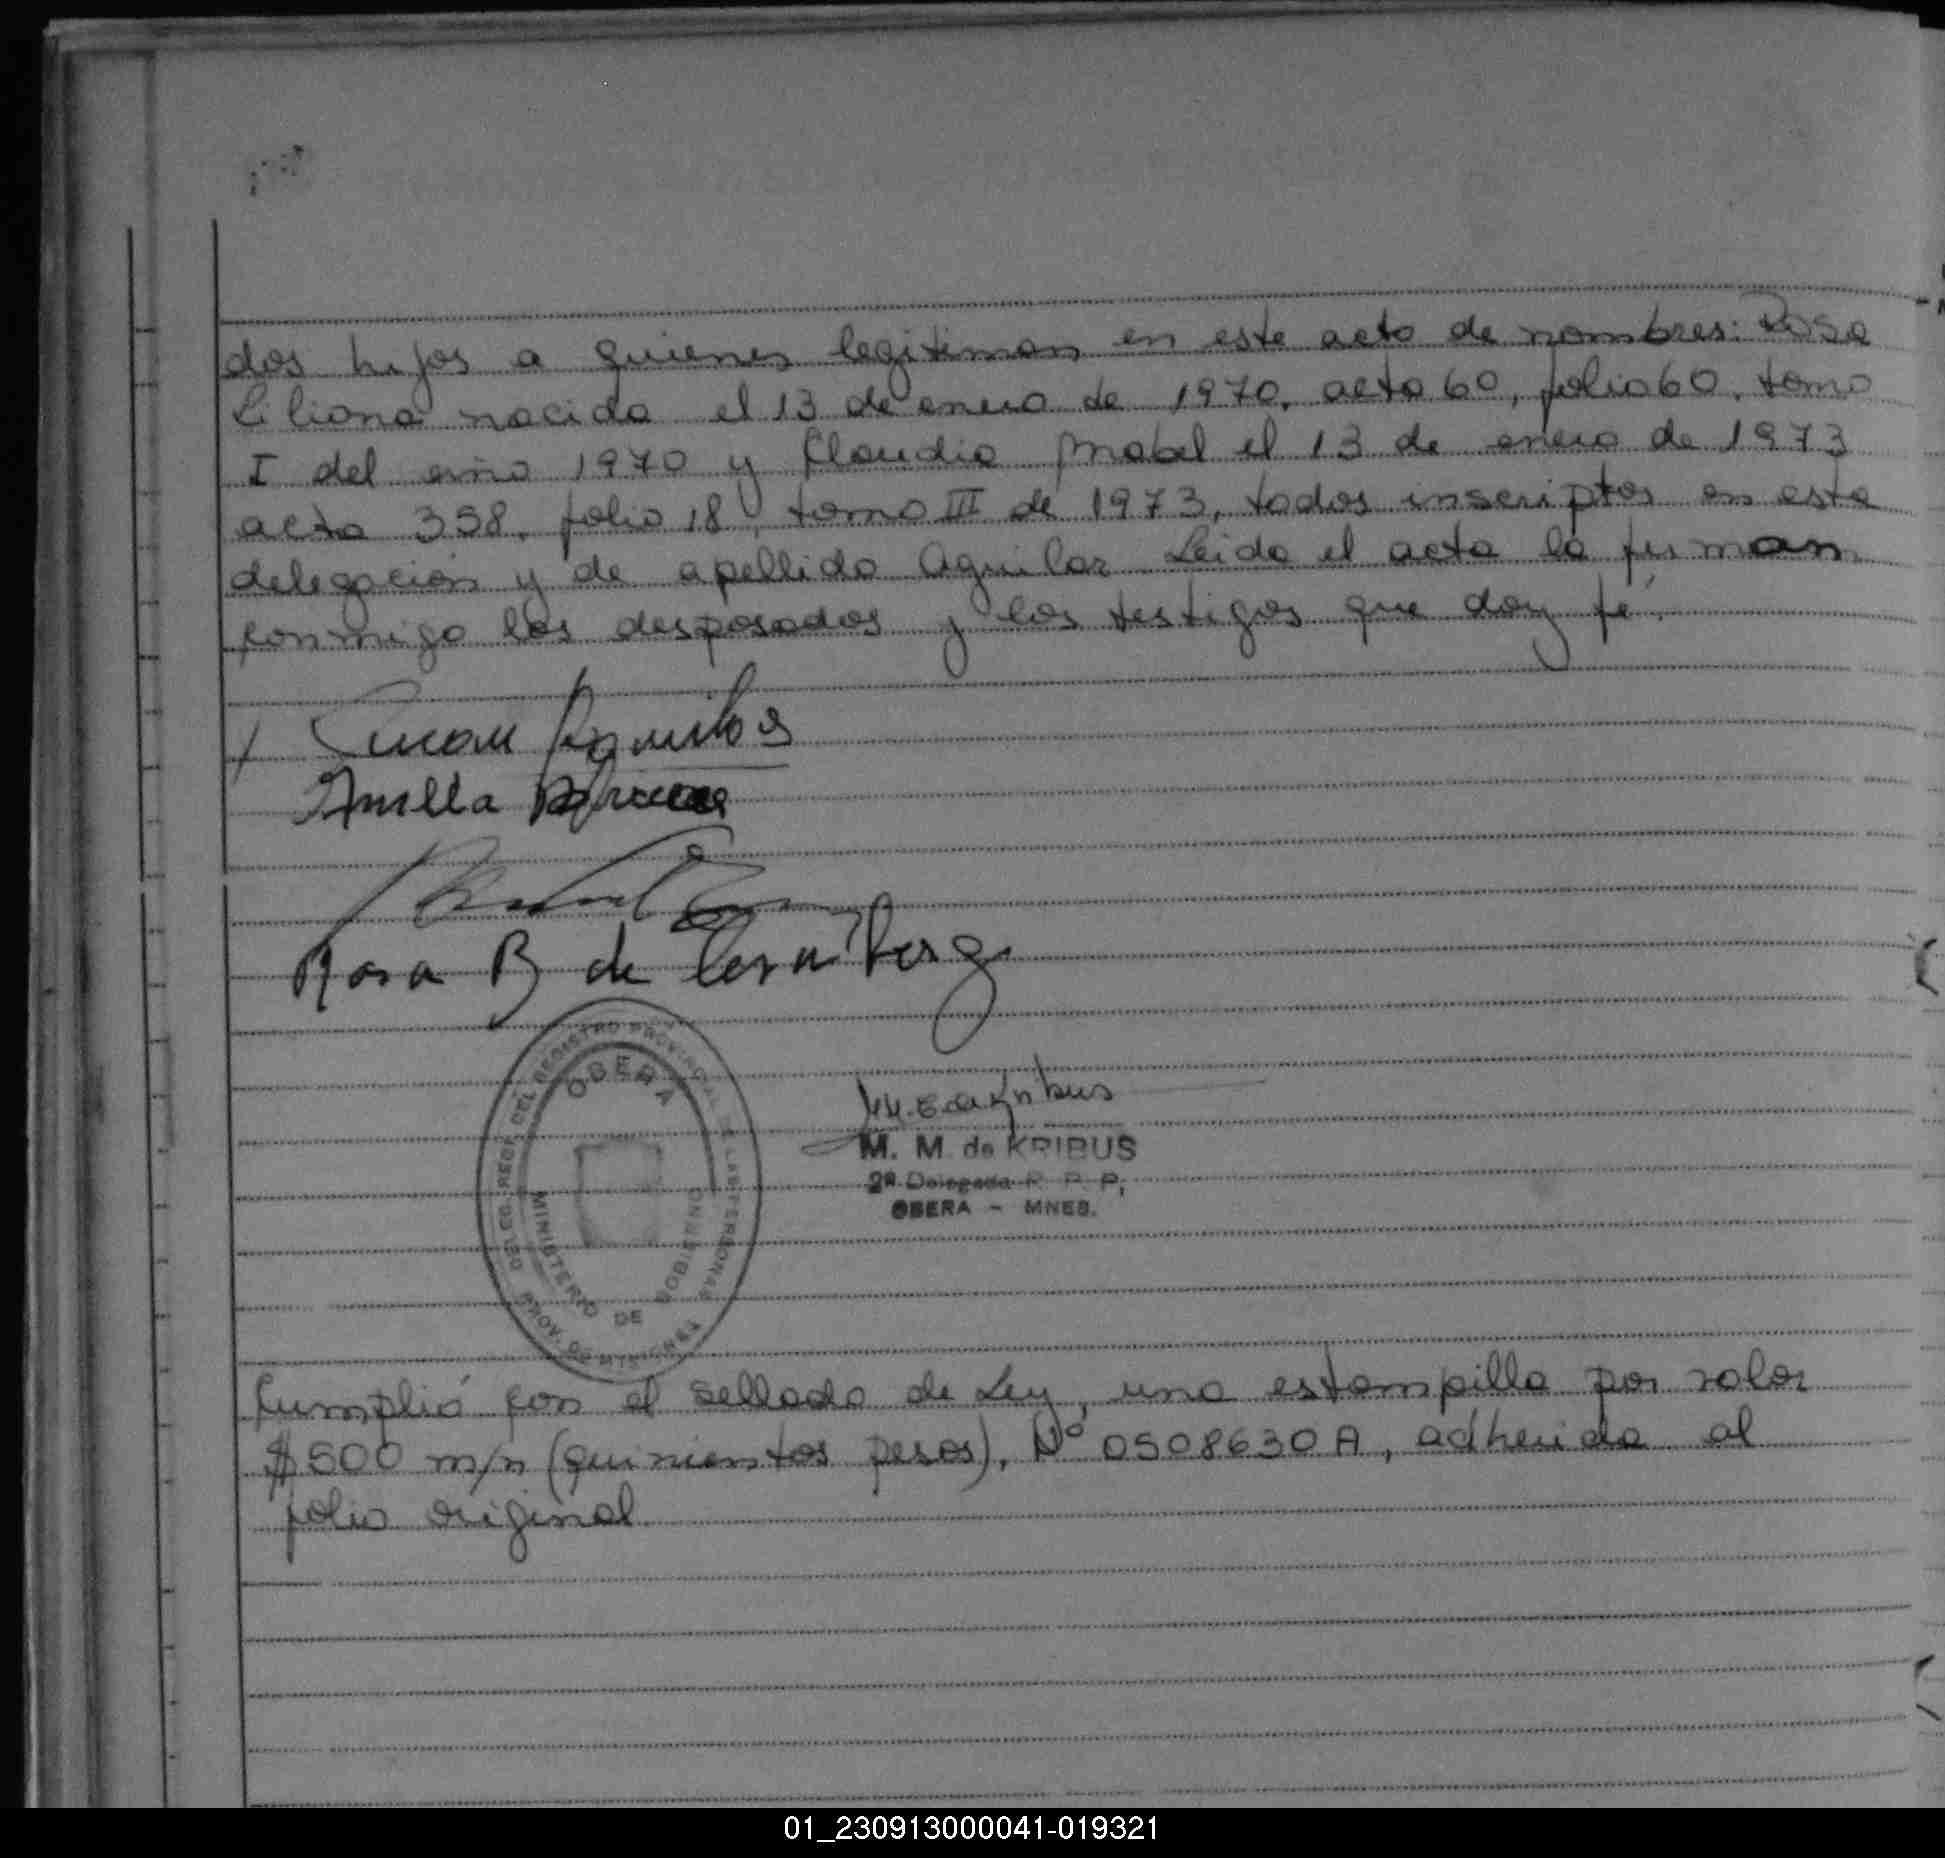 dos hijos a quienes legitiman en este acto de nombres: Rosa
Liliana nacida el 13 de enero de 1970, acta 60, folio 60, tomo
I del año 1970 y Claudia Mabel el 13 de enero de 1973
acta 358, folio 18, tomo III de 1973, todos inscriptos en esta
delegación y de apellido Aguilar. Leida el acta la firman
conmigo los desposados y los testigos que doy fé.
Aguilar
Rosa B de
OBERA
DELEG. RSOP. DEL REGISTRO PROVINCIAL DE LAS PERSONAS
MINISTERIO DE GOBIERNO
PROV. DE MISIONES
M. M. de KRIBUS
2ª Delegada R. P. P.
OBERA - MNES.
Cumplió con el sellado de Ley, una estampilla por valor
$500 m/n (quinientos pesos), Nº 0508630A, adherida al
folio original
01_230913000041-019321